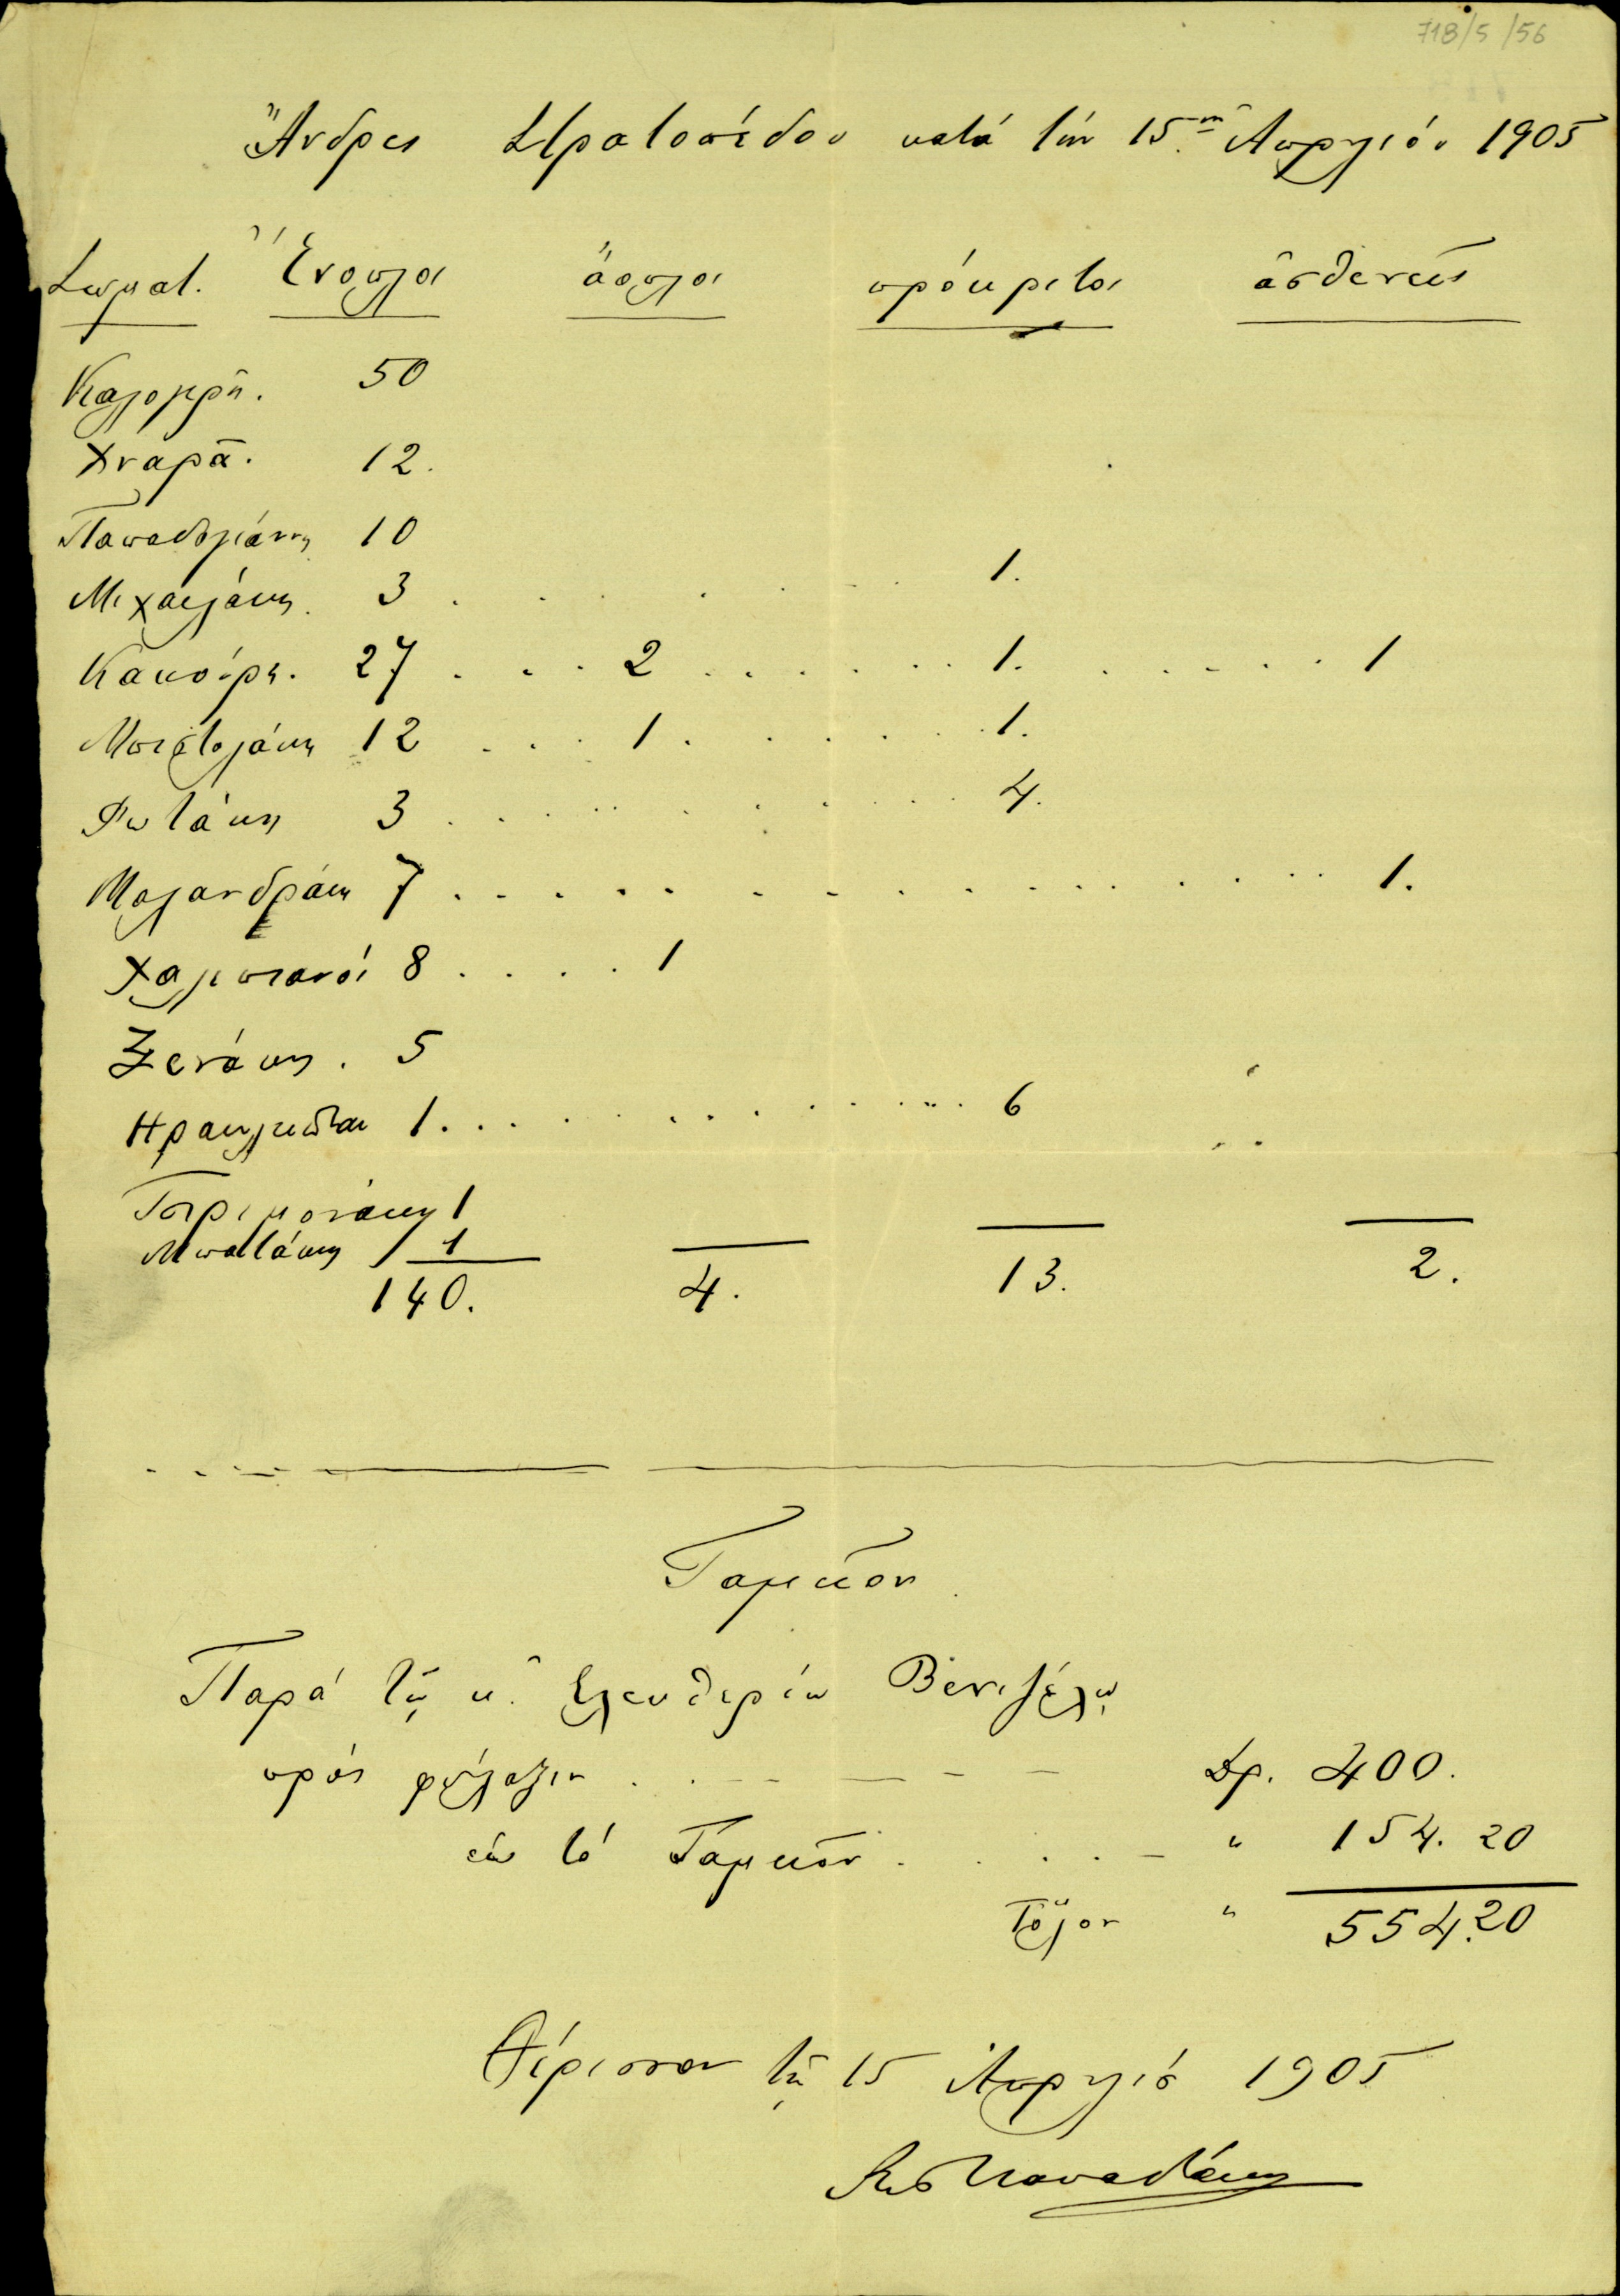 718/5/56
Ἄνδρες Στρατοπέδου κατά τήν 15ην Απριλίου 1905
Σωματ. Ἔνοπλοι ἄοπλοι πρόκριτοι ἀσθενεῖς
Καλομρη. 50
Χναρᾶ. 12.
Παπαδογιάννη 10
Μιχαηλάκη. 3 . . . . . . 1.
Κακούρη. 27 . . . 2 . . . . . . 1. . . . . . 1
Μπιστολάκη 12 . . . 1 . . . . . . 1.
Φωτάκη 3 . . . . . . . . . 4.
Μαλανδράκη 7 . . . . . . . . . . . . . . . 1.
Χαλμπανοί 8 . . . . 1
Ξενάκη . 5
Ηρακλειῶται 1 . . . . . . . . . . . . 6
Τσιριμονάκη 1
Μπατάκη 1
140. 4. 13. 2.
Ταμεῖον
Παρά τῷ κ. Ἐλευθερίῳ Βενιζέλῳ
πρός φύλαξιν . . - - - - - Δρ. 400.
εἰς τό Ταμεῖον . . . . - " 154. 20
Τὸ ὅλον " 554.20
Θέρισσον τῇ 15 Ἀπριλίου 1905